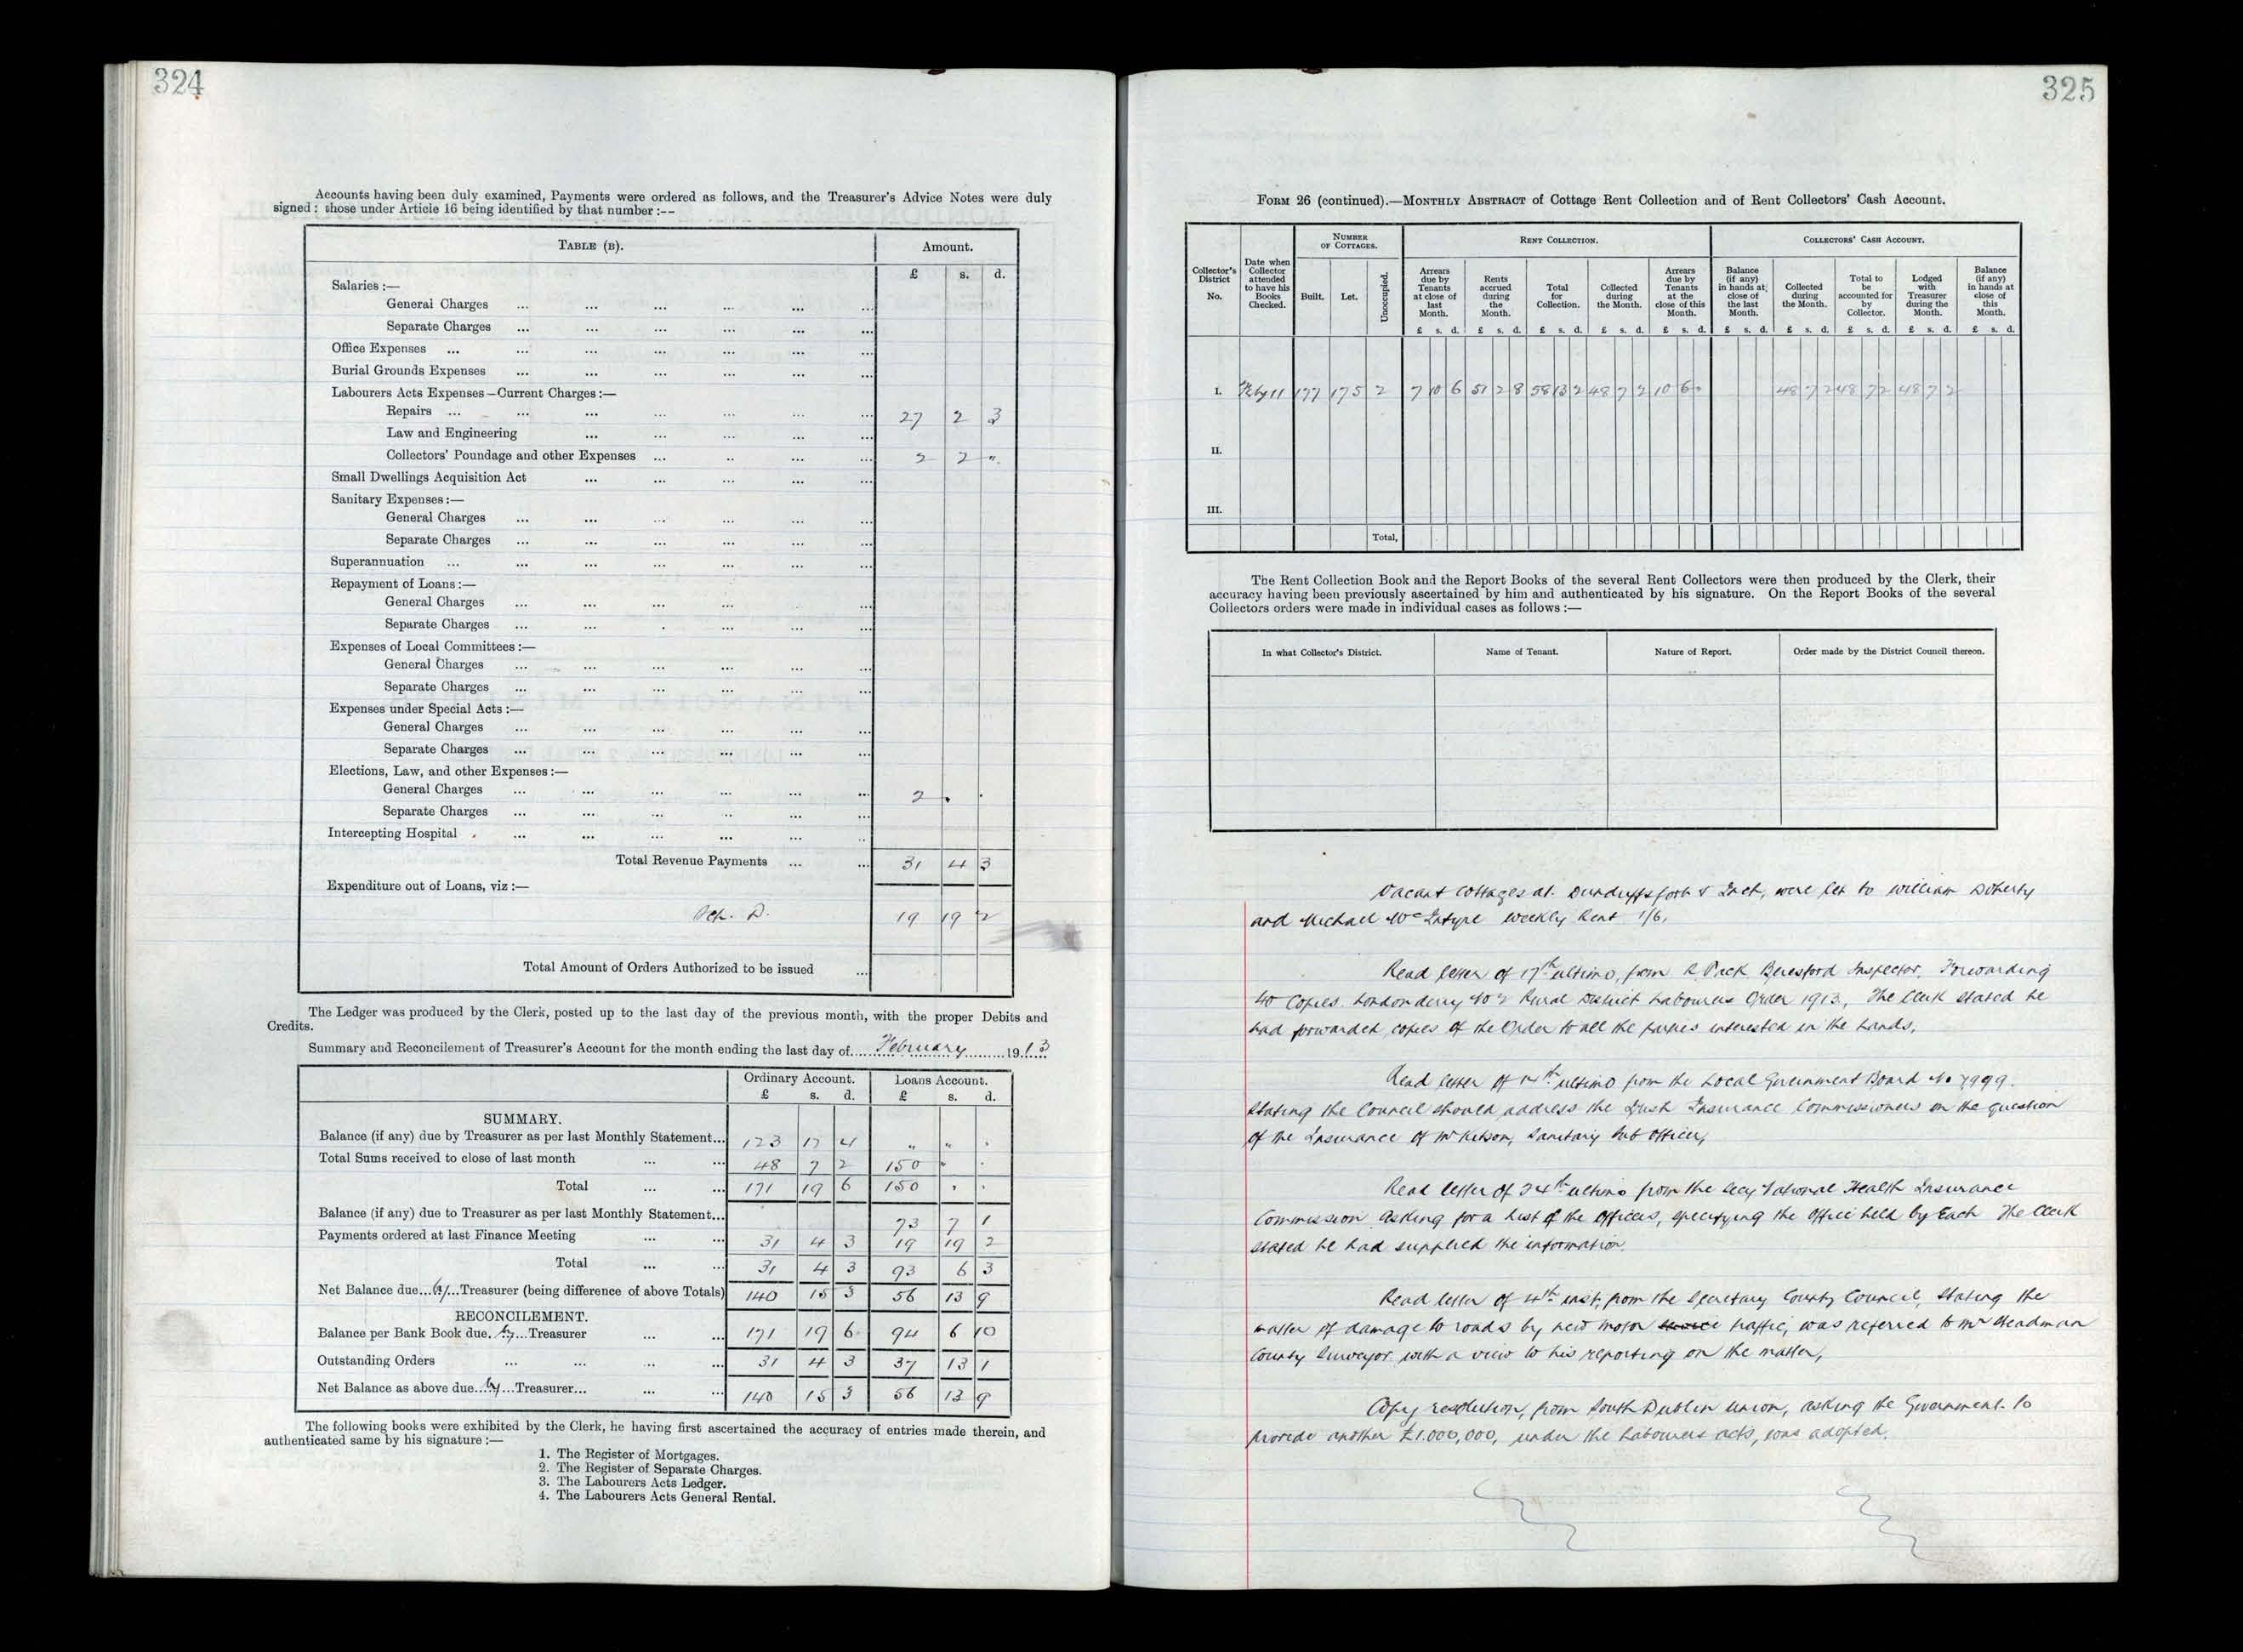 324
Accounts having been duly examined, Payments were ordered as follows, and the Treasurer's Advice Notes were duly
signed: those under Article 16 being identified by that number :--
TABLE (B). Amount.
£ s. d.
Salaries :—
General Charges ... ... ... ... ... ...
Separate Charges ... ... ... ... ... ...
Office Expenses ... ... ... ... ... ...
Burial Grounds Expenses ... ... ... ... ... ...
Labourers Acts Expenses—Current Charges :—
Repairs ... ... ... ... ... ... 27 2 3
Law and Engineering ... ... ... ...
Collectors' Poundage and other Expenses ... .. ... ... 2 2 "
Small Dwellings Acquisition Act ... ... ... ... ...
Sanitary Expenses :—
General Charges ... ... ... ... ... ...
Separate Charges ... ... ... ... ... ...
Superannuation ... ... ... ... ... ...
Repayment of Loans :—
General Charges ... ... ... ... ... ...
Separate Charges ... ... . ... ... ...
Expenses of Local Committees :—
General Charges ... ... ... ... ... ...
Separate Charges ... ... ... ... ... ...
Expenses under Special Acts :—
General Charges ... ... ... ... ... ...
Separate Charges ... ... ... ... ... ...
Elections, Law, and other Expenses :—
General Charges ... ... ... ... ... ... 2 . .
Separate Charges ... ... ... .. ... ...
Intercepting Hospital ... ... ... ... ... ..
Total Revenue Payments ... ... 31 4 3
Expenditure out of Loans, viz :—
19 19 2
Total Amount of Orders Authorized to be issued ...
The Ledger was produced by the Clerk, posted up to the last day of the previous month, with the proper Debits and
Credits.
Summary and Reconcilement of Treasurer's Account for the month ending the last day of February 1913
Ordinary Account. Loans Account.
£ s. d. £ s. d.
SUMMARY.
Balance (if any) due by Treasurer as per last Monthly Statement... 123 12 4 " " .
Total Sums received to close of last month ... ... 48 7 2 150 " .
Total ... ... 171 19 6 150 . .
Balance (if any) due to Treasurer as per last Monthly Statement... 73 7 1
Payments ordered at last Finance Meeting ... ... 31 4 3 19 19 2
Total ... ... 31 4 3 93 6 3
Net Balance due...by...Treasurer (being difference of above Totals) 140 15 3 56 13 9
RECONCILEMENT.
Balance per Bank Book due by Treasurer ... ... 171 19 6 94 6 10
Outstanding Orders ... ... ... ... 31 4 3 37 13 1
Net Balance as above due...by...Treasurer... ... ... 140 15 3 56 13 9
The following books were exhibited by the Clerk, he having first ascertained the accuracy of entries made therein, and
authenticated same by his signature :—
1. The Register of Mortgages.
2. The Register of Separate Charges.
3. The Labourers Acts Ledger.
4. The Labourers Acts General Rental.
325
FORM 26 (continued).—MONTHLY ABSTRACT of Cottage Rent Collection and of Rent Collectors' Cash Account.
Collector's District No. Date when Collector attended to have his Books Checked. NUMBER OF COTTAGES. RENT COLLECTION. COLLECTORS' CASH ACCOUNT.
Built. Let. Unoccupied. Arrears due by Tenants at close of last Month. Rents accrued during the Month. Total for Collection. Collected during the Month. Arrears due by Tenants at the close of this Month. Balance (if any) in hands at close of the last Month. Collected during the Month. Total to be accounted for by Collector. Lodged with Treasurer during the Month. Balance (if any) in hands at close of this Month.
£ s. d. £ s. d. £ s. d. £ s. d. £ s. d. £ s. d. £ s. d. £ s. d. £ s. d. £ s. d.
I. Feby 11 177 175 2 7 10 6 51 2 8 58 13 2 48 7 2 10 6 0 48 7 2 48 7 2 48 7 2
II.
III.
Total,
The Rent Collection Book and the Report Books of the several Rent Collectors were then produced by the Clerk, their
accuracy having been previously ascertained by him and authenticated by his signature. On the Report Books of the several
Collectors orders were made in individual cases as follows :—
In what Collector's District. Name of Tenant. Nature of Report. Order made by the District Council thereon.
Vacant Cottages at Dunduffsfort & Inch, were let to William Doherty
and Michael McIntyre weekly Rent 1/6.
Read letter of 17th ultimo, from R Pack Beresford Inspector. Forwarding
40 Copies Londonderry No 2 Rural District Labourers Order 1913, The Clerk stated he
had forwarded copies of the Order to all the parties interested in the Lands.
Read letter of 14th ultimo from the Local Government Board No 7999.
Stating the Council should address the Irish Insurance Commissioners on the question
of the Insurance of Mr Kitson, Sanitary Sub Officer,
Read letter of 24th ultimo from the Secy National Health Insurance
Commission asking for a list of the Officers, specifying the Office held by Each The Clerk
stated he had supplied the information.
Read letter of 4th inst, from the Secretary County Council, Stating the
matter of damage to roads by new motor traffic, was referred to Mr Steadman
County Surveyor with a view to his reporting on the matter,
Copy resolution, from South Dublin Union, asking the Government to
provide another £1.000,000, under the Labourers acts, was adopted.